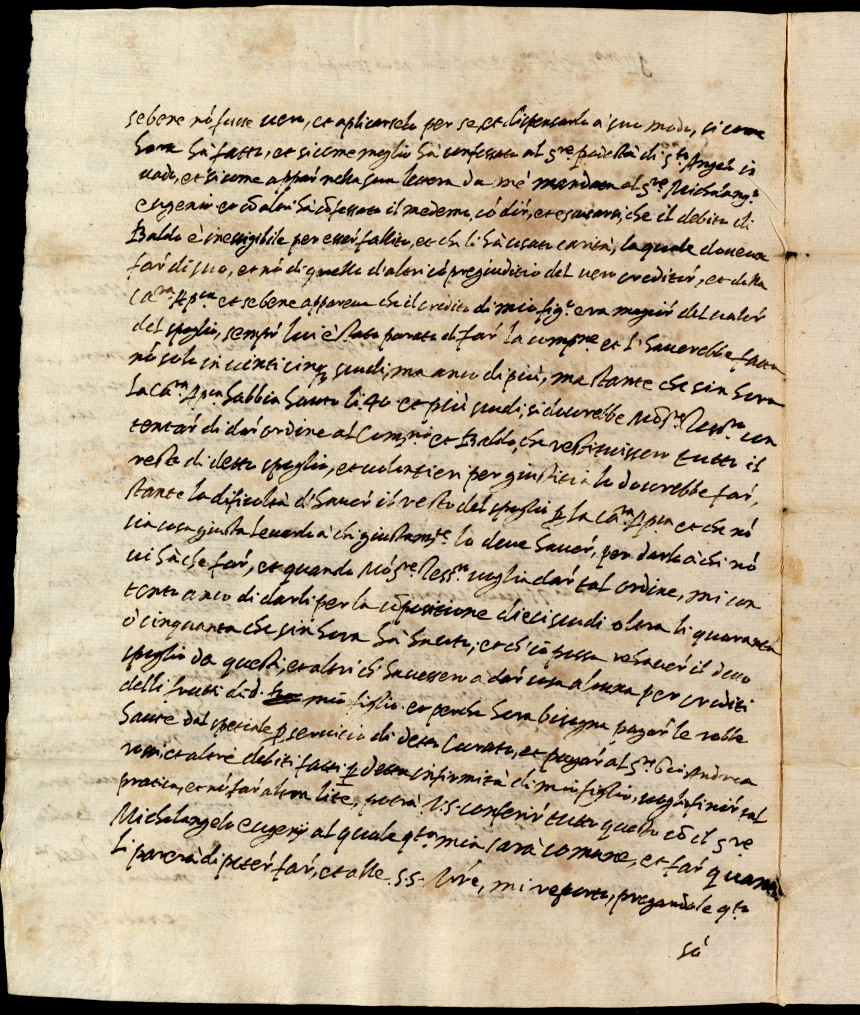 sebene nó fusse uero, et aplicarselo per se, et dispensarlo à suo modo, si come
hora hà fatto, et sicome meglio hà confessato al s.re podestà di s.to Angelo in
uado, et sicome appar nella sua lettera da mé mandata al s.re Michelang.o
eugenio et có altri hà cófessato il medemo, có dir, et escusarsi, che il debito di
Baldo è inessigibile per esser fallito, et che li hà usato carità, la quale doueua
far di suo, et nó di quello d'altri có pregiuditio del uero creditor, et della
Ca.ra Ap.ca et sebene appareua che il credito di mio fig.o era magior del ualor
del spoglio, sempre lui è stato parato di far la comp.ne et l'hauerebbe fatta
nó solo in uinticinq. scudi, ma anco di più, ma stante che sin hora
la Ca.ra Ap.ca habbia hauto li 40 et più scudi, si douerebbe Mó.s.re con
tentar di dar ordine al Com.rio et Baldo, che restituissero tutto il
resto di detto spoglio, et uolontieri per giustitia lo douerebbe far,
stante la dificoltà d'hauer il resto del spoglio p la Ca.ra Ap.ca et che nó
sia cosa giusta leuarlo à chi giustam.te lo deue hauer, per darlo à chi nó
ui hà che far, et quando Mó.s.re uoglia dar tal ordine, mi con
tento anco di darli per la cópositione dieci scudi oltra li quaranta
ò cinquanta che sin hora hà hauto, et ch'io possa rehauer il detto
spoglio da questi, et altri ch'hauessero a dar cosa alcuna per crediti
delli frutti di d. mio figlio. et perche hora bisogna pagar le robbe
haute dal spetiale p seruitio di detto Curato, et pagar al s.re Gio Andrea
rossi, et altre debiti fatti p detta infirmità di mio figlio, uoglio finir tal
pratica, et nó far altra lite, potrà V.S. conferir tutto questo có il s.re
Michelangelo eugenij al quale q.ta mia sarà comune, et far quanto
li parerà di poter far, et alle .S.S. V.re, mi reporto, pregandole q.to
sò